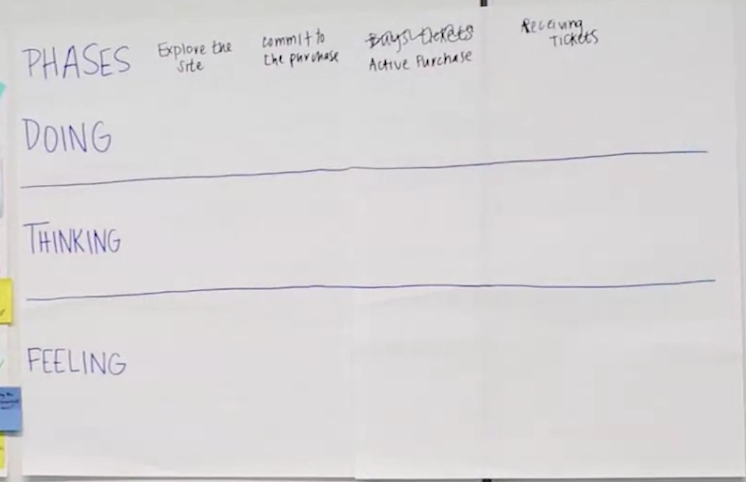 PHASES
Explore the
site
commit to
the purchase
Buys tickets
Active Purchase
Receiving
Tickets
DOING
THINKING
FEELING